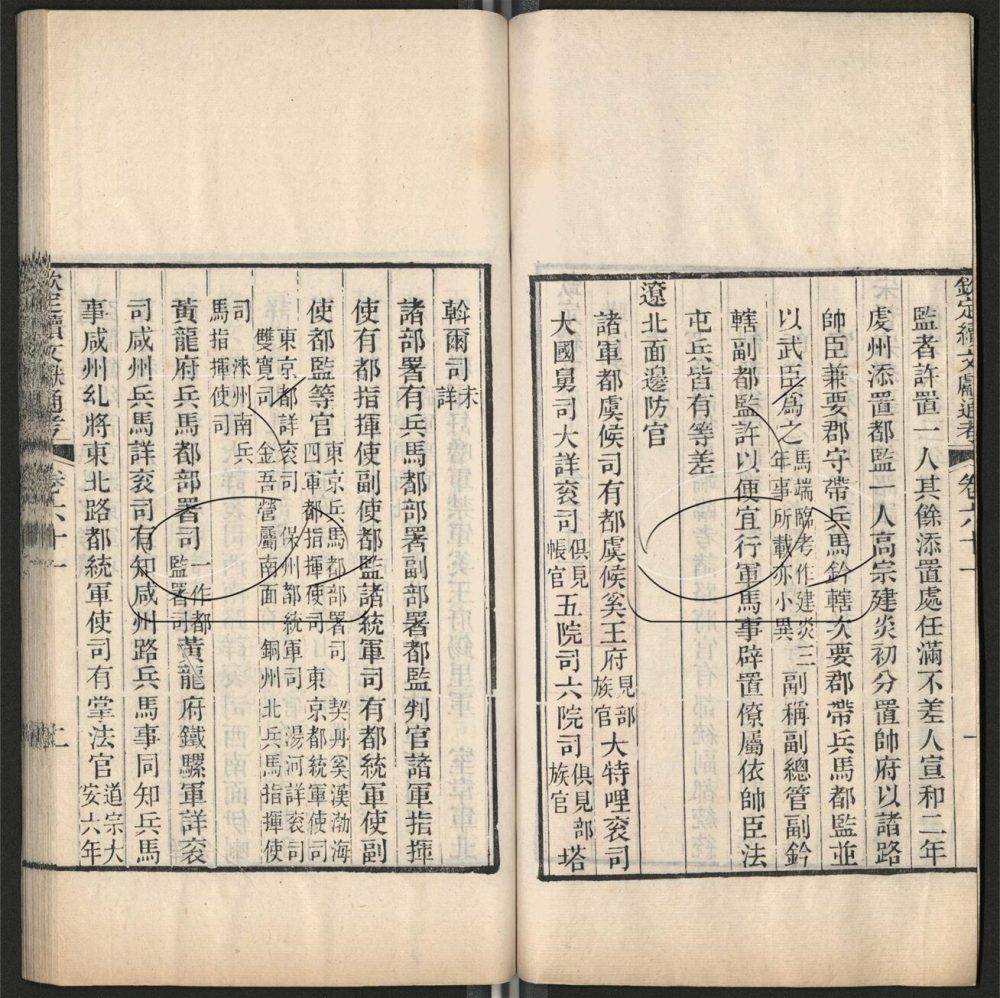 欽定續文獻通考 卷六十一
監者許置一人其餘添置處任滿不差人宣和二年
虔州添置都監一人高宗建炎初分置帥府以諸路
帥臣兼要郡守帶兵馬鈐轄次要郡帶兵馬都監並
以武臣為之馬端臨考作建炎三年事所載亦小異副稱副總管副鈐
轄副都監許以便宜行軍馬事辟置僚屬依帥臣法
屯兵皆有等差
遼北面邊防官
諸軍都虞候司有都虞候奚王府見部族官大特哩衮司
大國舅司大詳衮司俱見帳官五院司六院司俱見部族官塔
斡爾司未詳
諸部署有兵馬都部署副部署都監判官諸軍指揮
使有都指揮使副使都監諸統軍司有都統軍使副
使都監等官東京兵馬都部署司 契丹奚漢渤海四軍都指揮使司 東京都統軍使司
東京都詳衮司 保州都統軍司 湯河詳衮司雙寬司 金吾營屬南面 銅州北兵馬指揮使
司 淶州南兵馬指揮使司
黃龍府兵馬都部署司一作都監署司黃龍府鐵驪軍詳衮
司咸州兵馬詳衮司有知咸州路兵馬事同知兵馬
事咸州糺將東北路都統軍使司有掌法官道宗大安六年
欽定續文獻通考 卷六十一